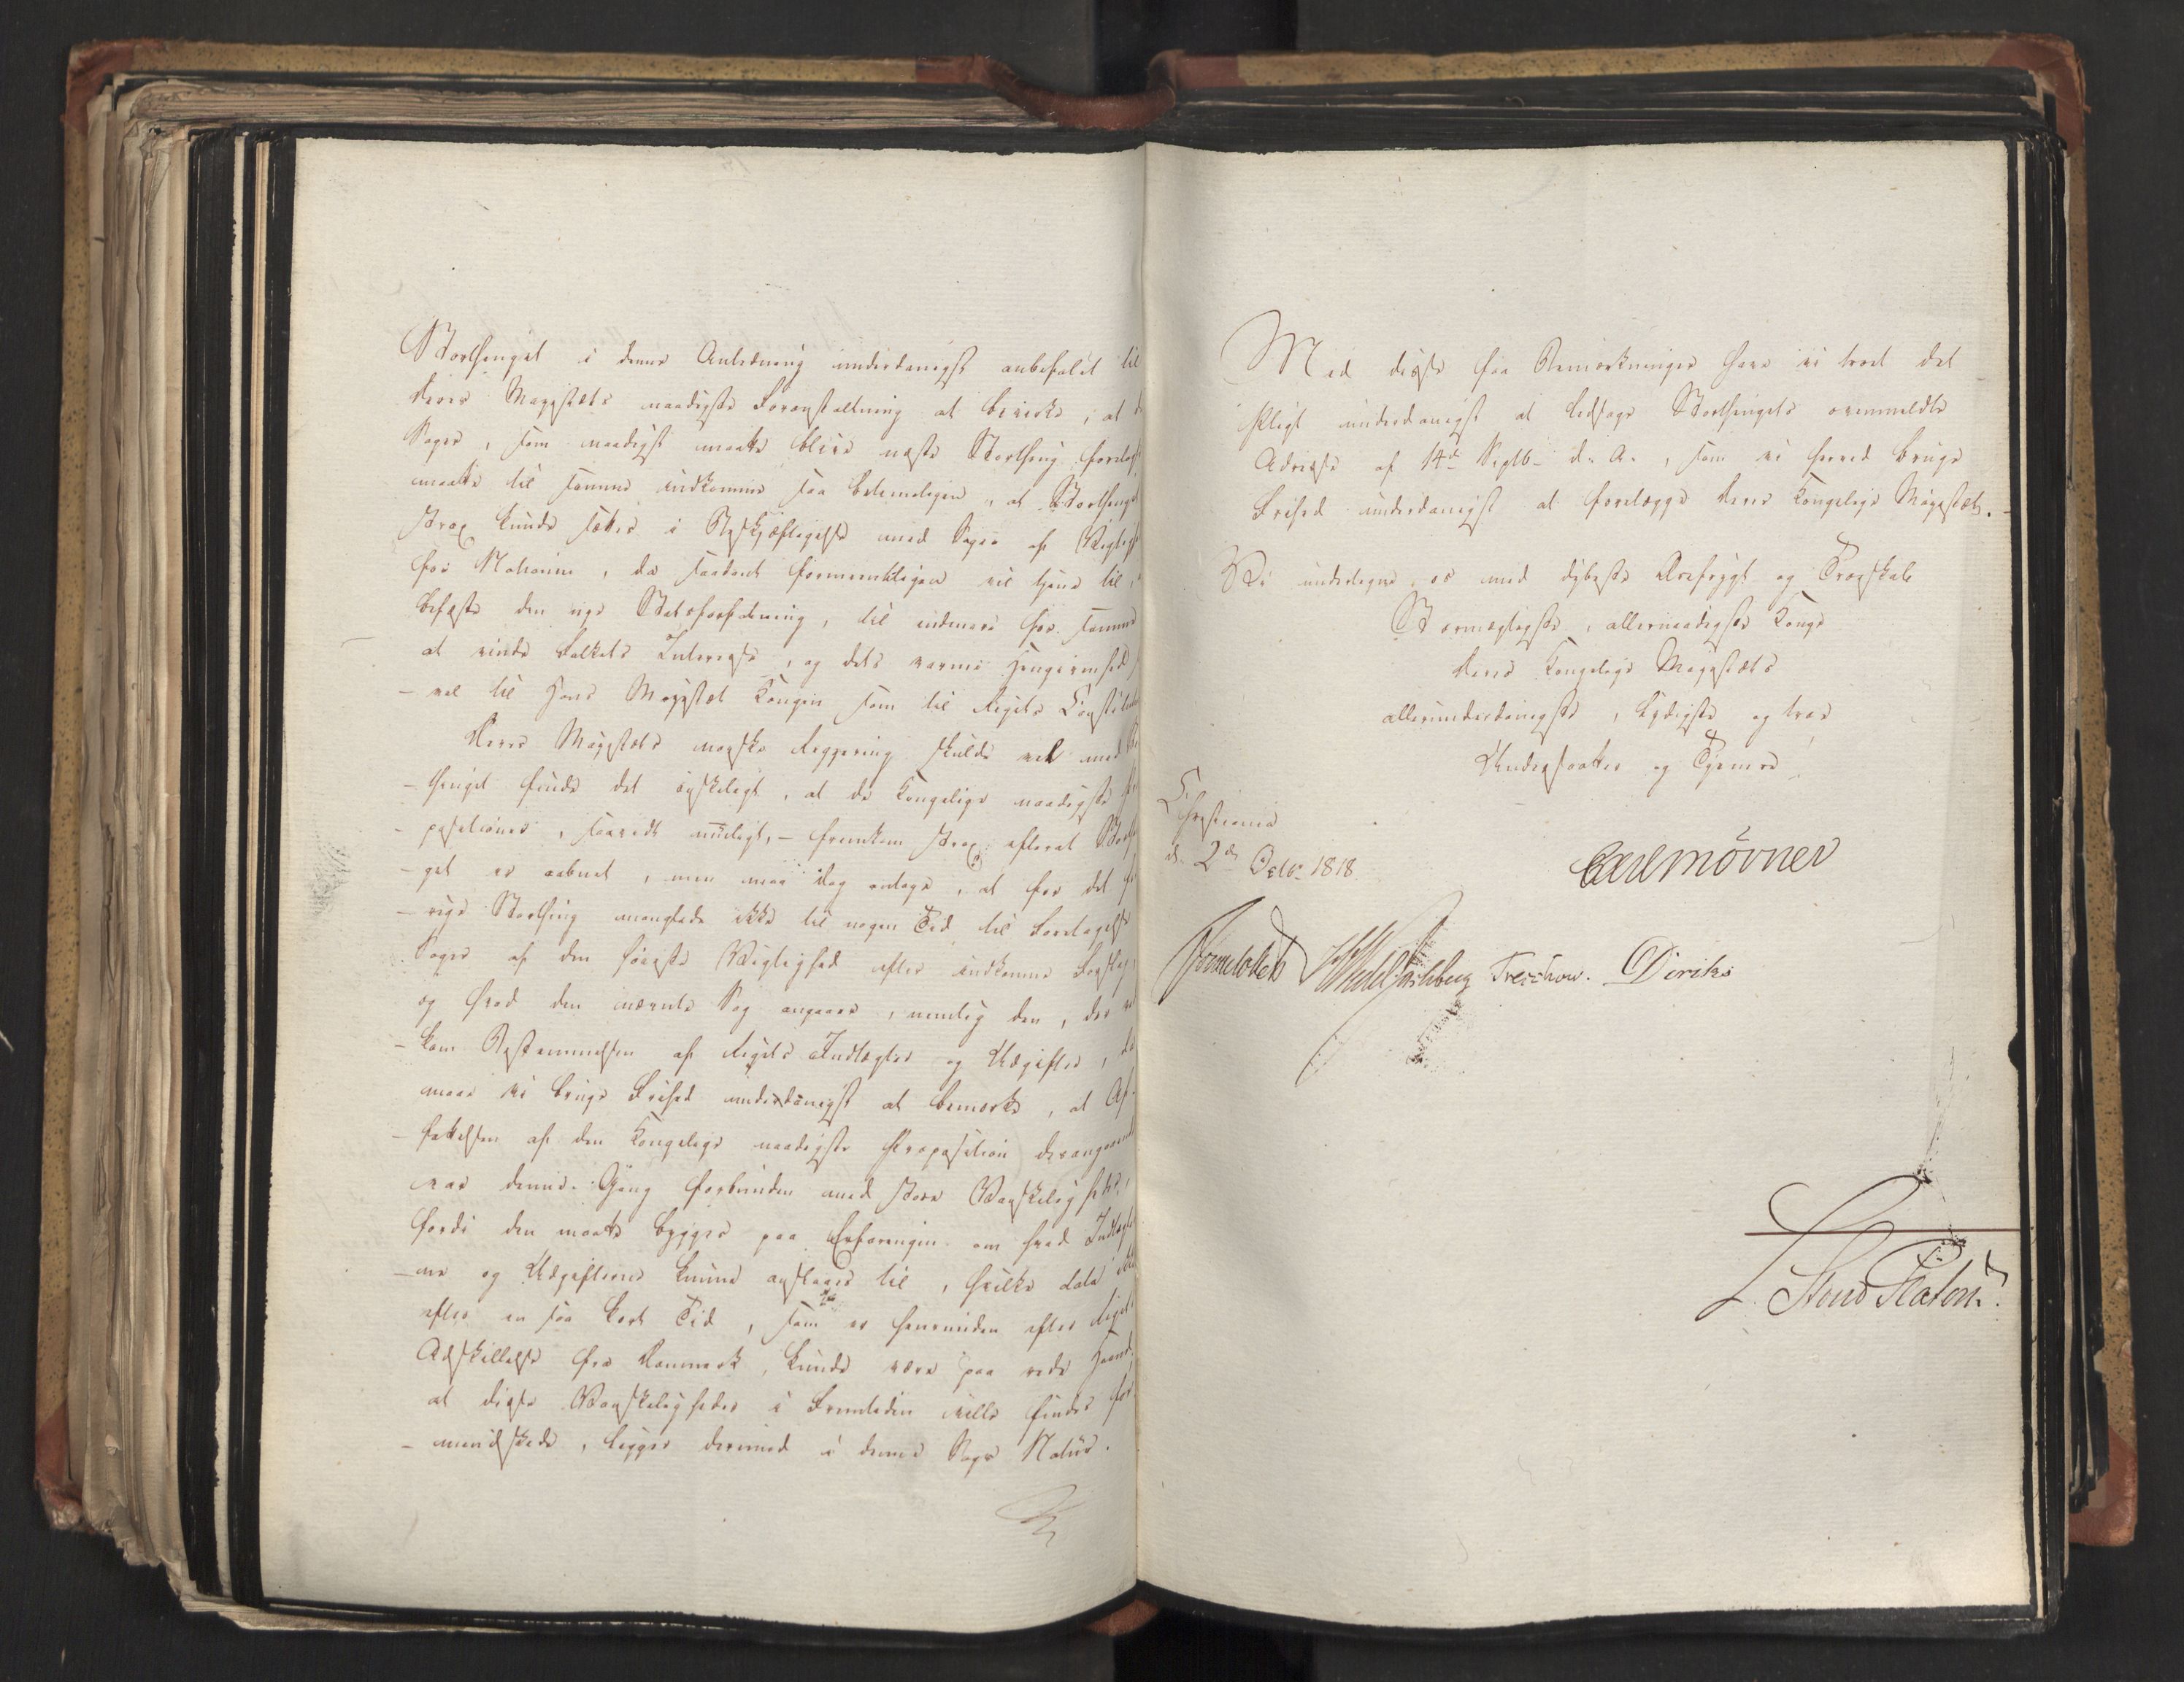 Storthinget i denne Anledning underdanigst anbefalet til
Deres Majestæts naadigste Foranstaltning at bevirke, at
Sager, som naadigst maatte blive næste Storthing forelagt
maatte til samme indkomme saa betimeligen, at Storthinget
strax kunde sættes i Beskjæftigelse med Sager af Vigtighed
for Nationen, da saadant formeentligen vil tjene til,
befæste den nye Statsforfatning, til endmere for samme
at vinde Folkets Interesse, og dets varme Hengivenhed
- vel til Hans Majestæt Kongen som til Rigets Constitution
Deres Majestæts norske Regjering skulde vel med
- thinget finde det ønskeligt, at de Kongelige naadigste
- positioner, saavidt mueligt, - fremkom strax efterat Storthin
- get er aabnet, men maa dog antage, at for det
- rige Storthing manglede ikke til nogen Tid til Foretagelse
Sager af den høieste Vigtighed efter indkomne Forslag,
og hvad den nævnte Sag angaaer, nemlig den, der
- kom Bestemmelsen af Rigets Indtægter og Udgifter,
maae vi bruge Frihed underdanigst at bemærke, at Af-
- fattelsen af den Kongelige naadigste Proposition derangaaende
var denne Gang forbunden med store Vanskeligheder,
fordi den maatte bygges paa Erfaringen om hvad Indtægter
- ne og Udgifterne kunne anslaaes til, hvilke data ikke
efter en saa kort Tid, som er henrunden efter Rigets
Adskillelse fra Danmark, kunde være paa rede Haand.
at disse Vanskeligheder i Fremtiden ville findes for
- mindskede, ligger derimod i denne Sags Natur.
Med disse faa Bemærkninger have vi troet det
Pligt underdanigst at ledsage Storthingets ovenmeldte
Adresse af 14de Septb. d. A., som vi herved bruge
Frihed underdanigst at forelægge Deres Kongelige Majestæt.
Vi undertegne os med dybeste Ærefrygt og Troeskab
Stormægtigste, allernaadigste Konge
Deres Kongelige Majestæts
allerunderdanigste, lydigste og troe
Undersaatter og Tjenere
Christiania
d. 2den Octbr 1818.
Carl Mörner
Sommelhielm HWedel Jarlsberg Treschow. Diriks
L. Stoud Platou.